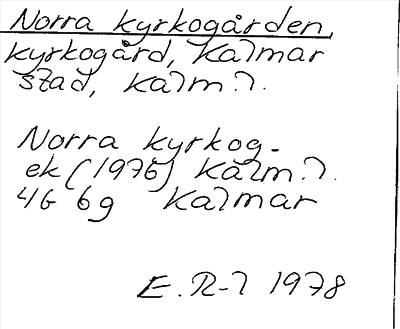 Norra kyrkogården,
kyrkogård, Kalmar
stad, Kalm.l.
Norra kyrkog-
ek (1976) Kalm.l.
4G 6g Kalmar
E.R-l 1978